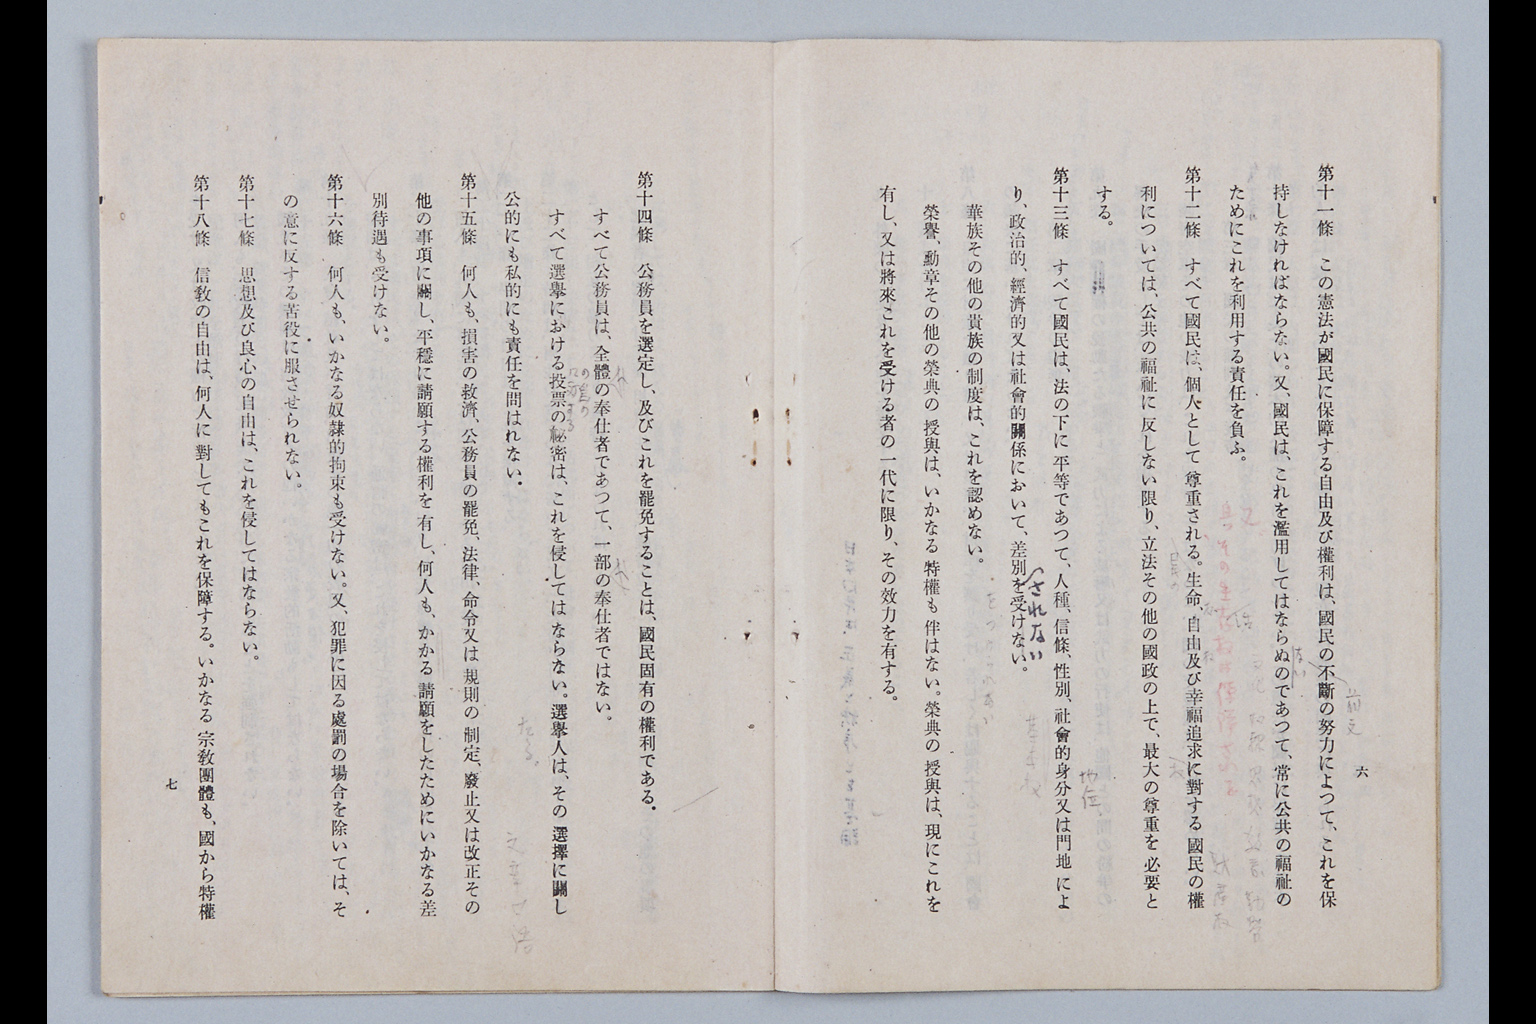 第十一條　この憲法が國民に保障する自由及び權利は、國民の不斷の努力によつて、これを保
持しなければならない。又、國民は、これを濫用してはならぬのであつて、常に公共の福祉の
ためにこれを利用する責任を負ふ。
第十二條　すべて國民は、個人として尊重される。生命、自由及び幸福追求に對する國民の權
利については、公共の福祉に反しない限り、立法その他の國政の上で、最大の尊重を必要と
する。
第十三條　すべて國民は、法の下に平等であつて、人種、信條、性別、社會的身分又は門地によ
り、政治的、經濟的又は社會的關係において、差別を受けない。
されない
地位
前文
華族その他の貴族の制度は、これを認めない。
榮譽、勳章その他の榮典の授與は、いかなる特權も伴はない。榮典の授與は、現にこれを
有し、又は將來これを受ける者の一代に限り、その效力を有する。
六
第十四條　公務員を選定し、及びこれを罷免することは、國民固有の權利である。
すべて公務員は、全體の奉仕者であつて、一部の奉仕者ではない。
すべて選擧における投票の秘密は、これを侵してはならない。選擧人は、その選擇に關し
公的にも私的にも責任を問はれない。
第十五條　何人も、損害の救濟、公務員の罷免、法律、命令又は規則の制定、廢止又は改正その
他の事項に關し、平穩に請願する權利を有し、何人も、かかる請願をしたためにいかなる差
別待遇も受けない。
第十六條　何人も、いかなる奴隷的拘束も受けない。又、犯罪に因る處罰の場合を除いては、そ
の意に反する苦役に服させられない。
第十七條　思想及び良心の自由は、これを侵してはならない。
第十八條　信敎の自由は、何人に對してもこれを保障する。いかなる宗敎團體も、國から特權
七